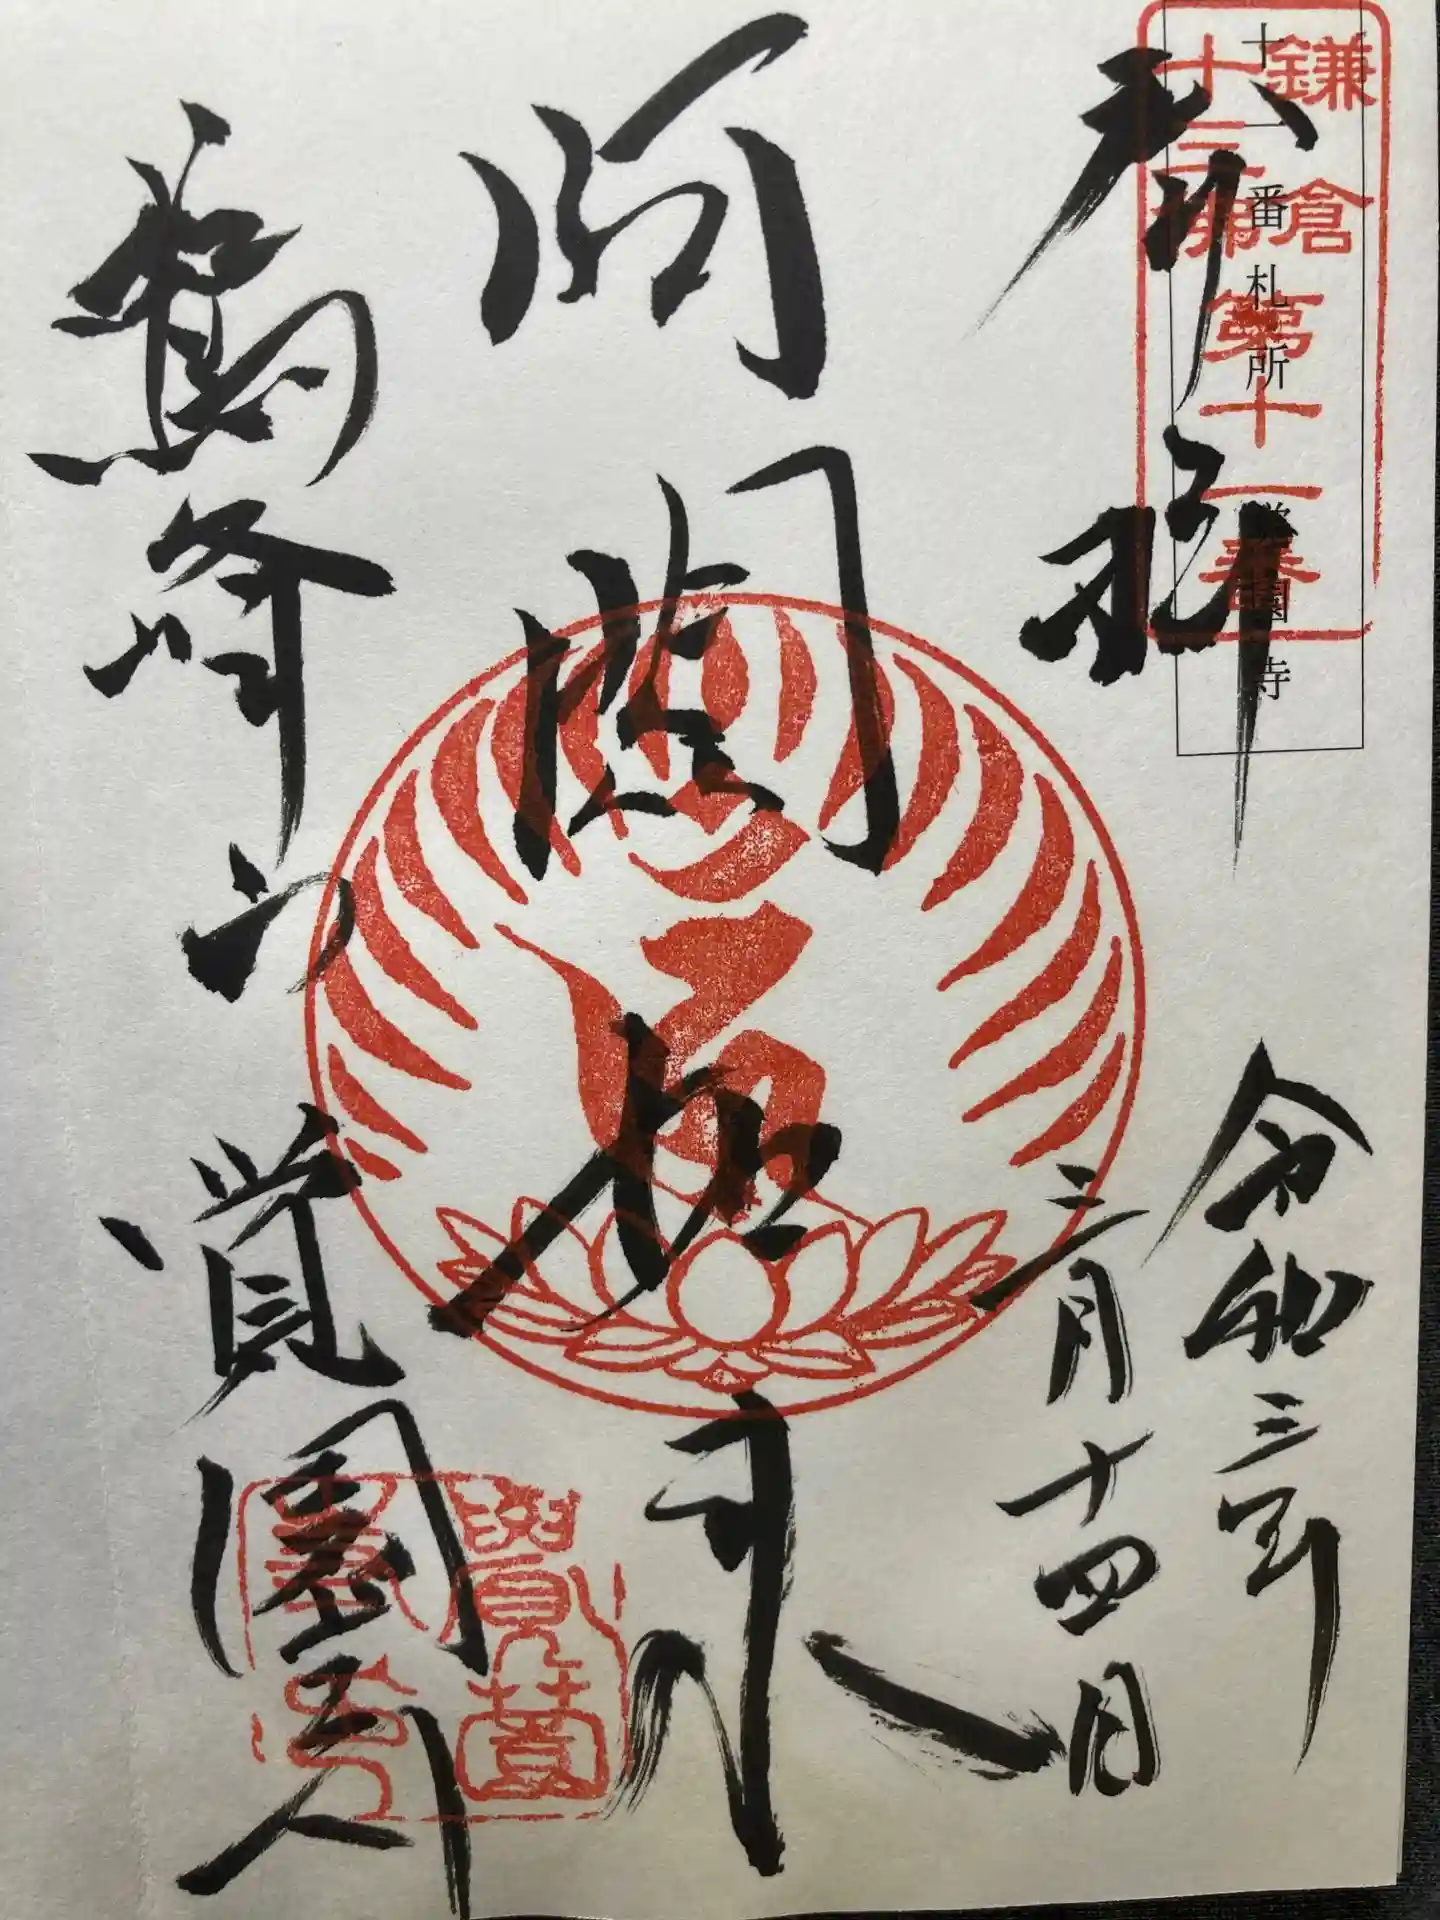 奉拝
鎌倉
十三佛
第十一番
十一番札所 覚園寺
令和三年
三月十四日
阿閦如来
鷲峰山 覚園寺